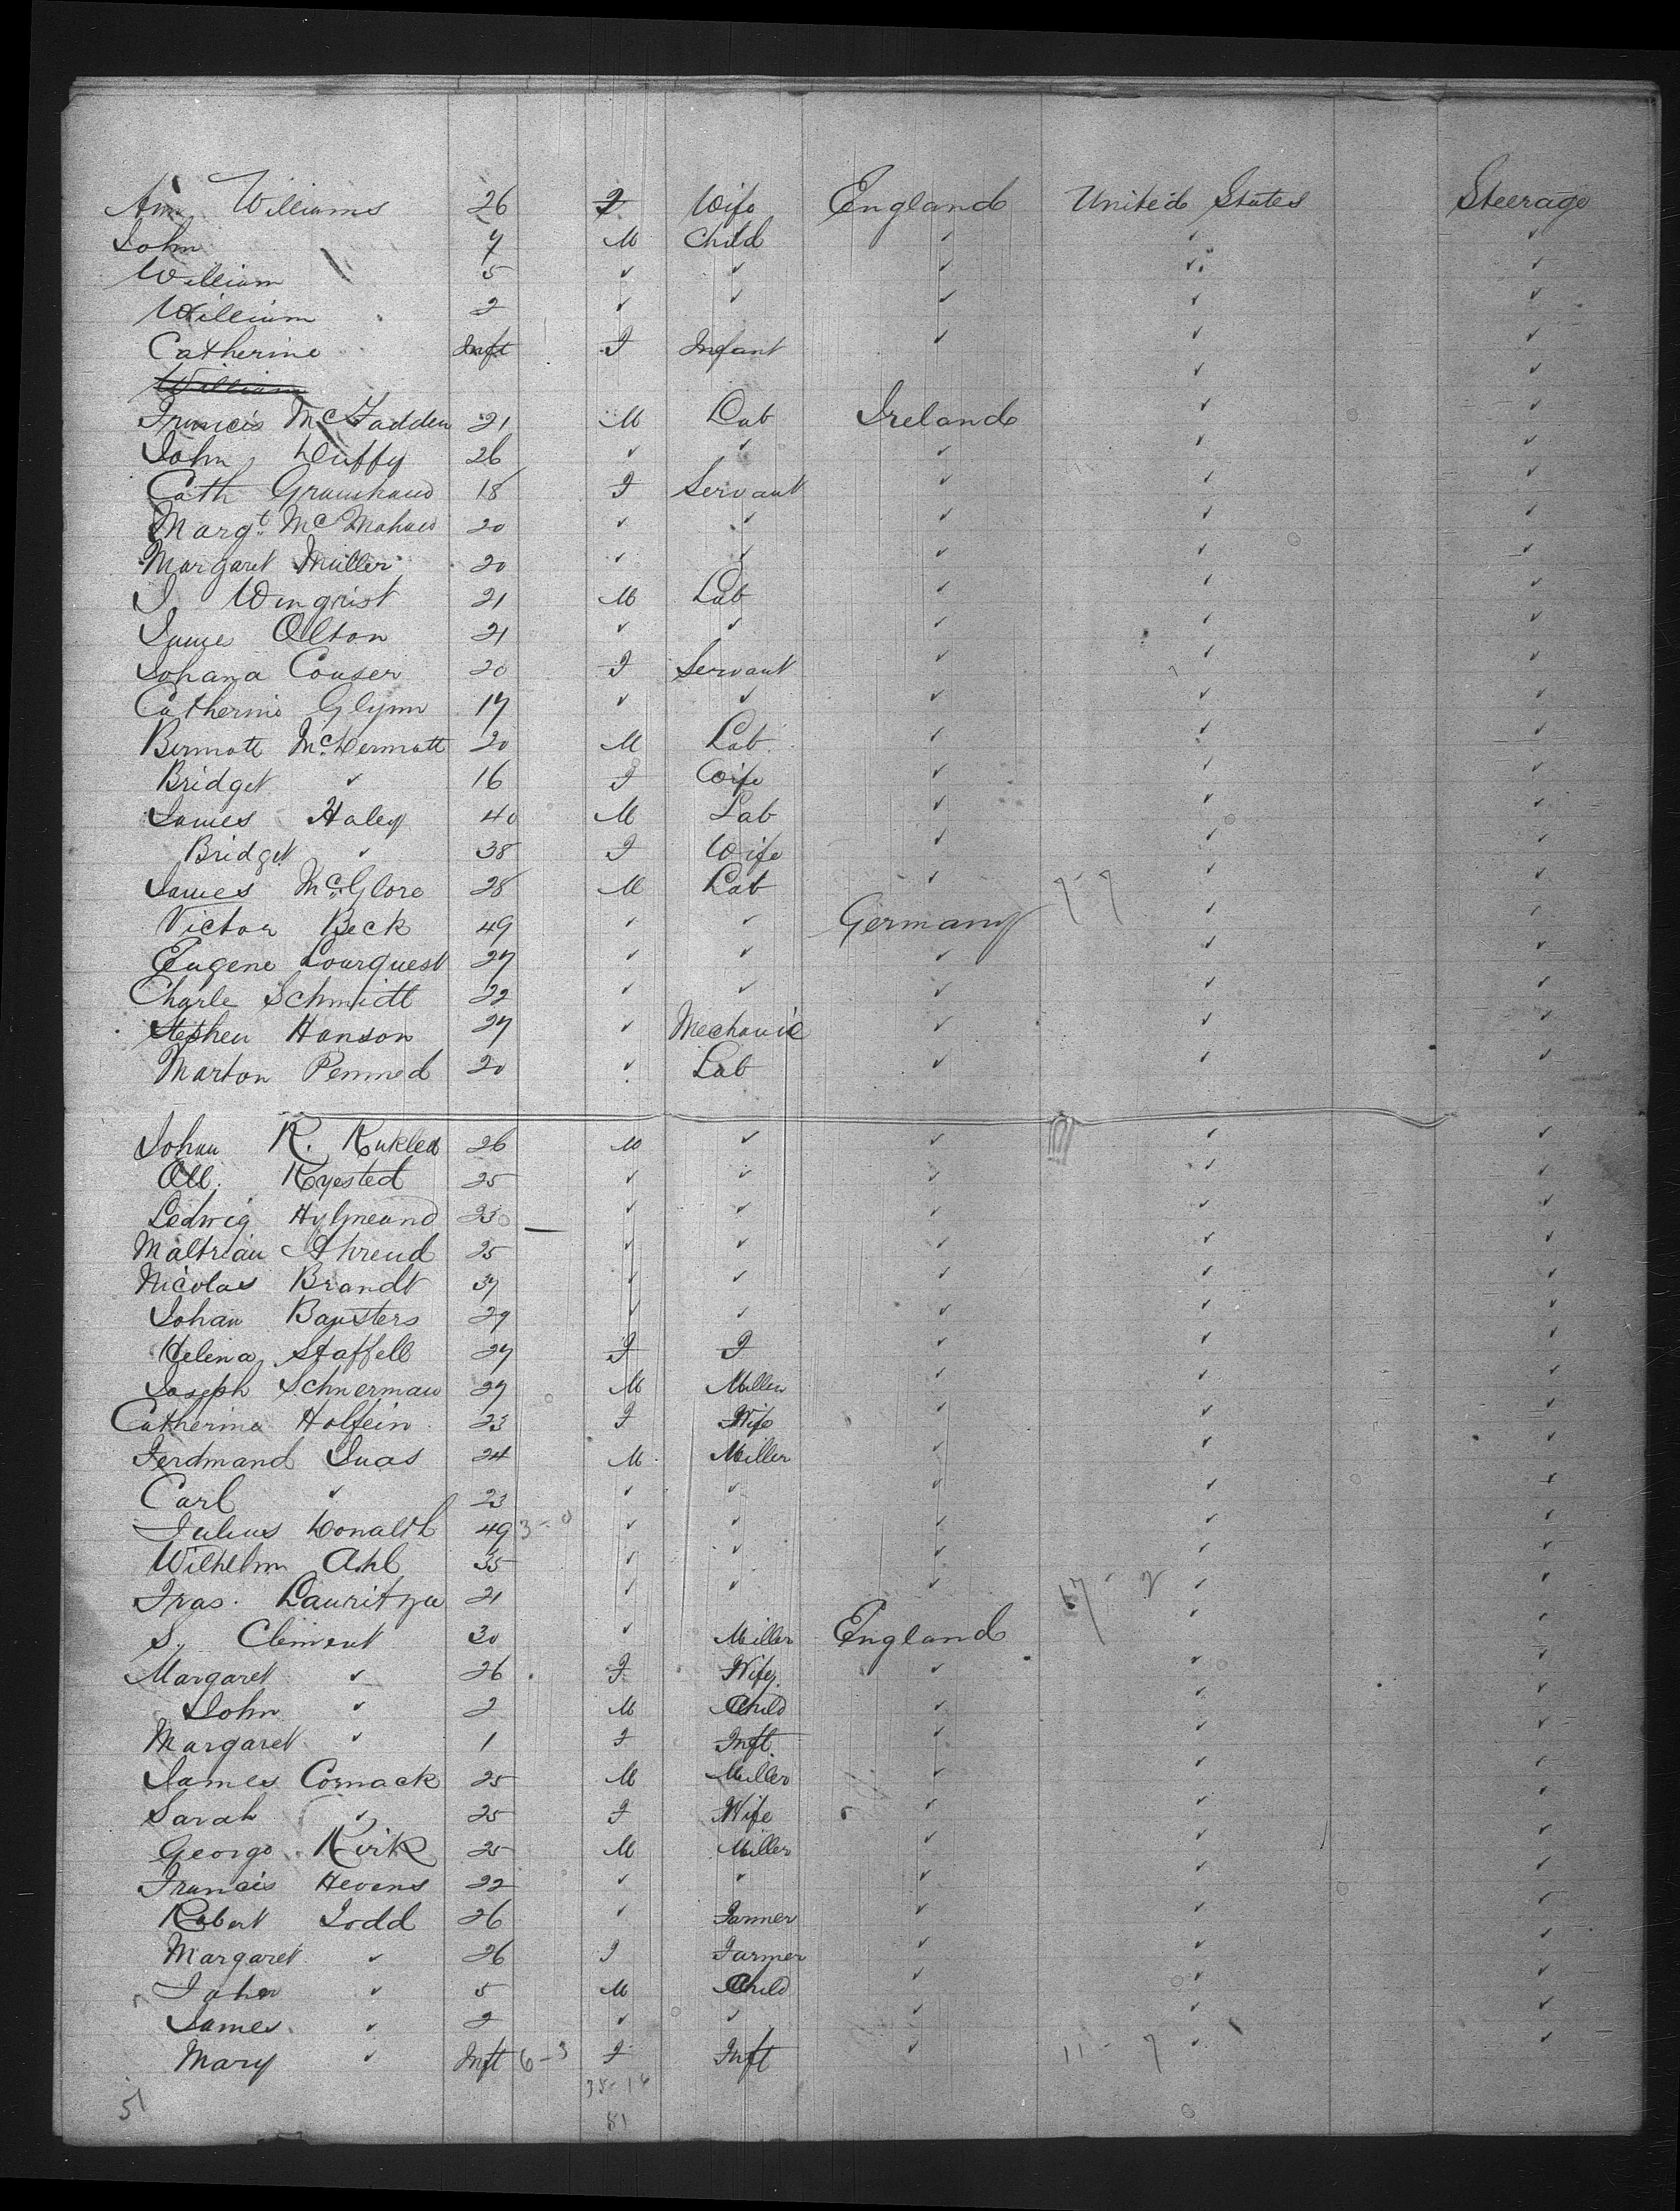 Ann Williams 26 F Wife England United States Steerage
John 7 M Child ✓ ✓ ✓
William 5 ✓ ✓ ✓ ✓ ✓
William 2 ✓ ✓ ✓ ✓ ✓
Catherine Inft F Infant ✓ ✓ ✓
William ✓ ✓
Francis McFadden 21 M Lab Ireland ✓ ✓
John Duffy 26 ✓ ✓ ✓ ✓ ✓
Cath 18 F Servant ✓ ✓ ✓
Margt McMahon 20 ✓ ✓ ✓ ✓ ✓
Margaret Miller 20 ✓ ✓ ✓ ✓ ✓
J. Winqrist 21 M Lab ✓ ✓ ✓
James Olton 21 ✓ ✓ ✓ ✓ ✓
Johana Couser 20 F Servant ✓ ✓ ✓
Catherine Glynn 17 ✓ ✓ ✓ ✓ ✓
Bermott McDermott 20 M Lab ✓ ✓ ✓
Bridget ✓ 16 F Wife ✓ ✓ ✓
James Haley 40 M Lab ✓ ✓ ✓
Bridget ✓ 38 F Wife ✓ ✓ ✓
James McGlore 28 M Lab ✓ 7-7 ✓ ✓
Victor Beck 49 ✓ ✓ Germany ✓ ✓
Eugene Lourquest 27 ✓ ✓ ✓ ✓ ✓
Charle Schmidt 22 ✓ ✓ ✓ ✓ ✓
Stephen Hanson 27 ✓ Mechanic ✓ ✓ ✓
Marton Penned 20 ✓ Lab ✓ ✓ ✓
Johan R. Rukled 26 M ✓ ✓ ✓ ✓
Oll. Ryested 25 ✓ ✓ ✓ ✓ ✓
Ledwig 23 ✓ ✓ ✓ ✓ ✓
Maltrian Ahrend 25 ✓ ✓ ✓ ✓ ✓
Nicolas Brandt 37 ✓ ✓ ✓ ✓ ✓
Johan Bansters 29 ✓ ✓ ✓ ✓ ✓
Helena Staffell 27 F F ✓ ✓ ✓
Joseph Schnerman 27 M Miller ✓ ✓ ✓
Catherine Holfein 23 F Wife ✓ ✓ ✓
Ferdmand Suas 24 M Miller ✓ ✓ ✓
Carl ✓ 23 ✓ ✓ ✓ ✓ ✓
Julius Donalth 49 3-0 ✓ ✓ ✓ ✓ ✓
Wilhelm Ahl 35 ✓ ✓ ✓ ✓ ✓
Fras. Lauritza 21 ✓ ✓ ✓ 17-2 ✓ ✓
S. Clement 30 ✓ Miller England ✓ ✓
Margaret ✓ 26 F Wife ✓ ✓ ✓
John ✓ 2 M Child ✓ ✓ ✓
Margaret ✓ 1 F Inft ✓ ✓ ✓
James Cormack 25 M Miller ✓ ✓ ✓
Sarah ✓ 25 F Wife ✓ ✓ ✓
George Kirk 25 M Miller ✓ ✓ ✓
Francis Hevens 22 ✓ ✓ ✓ ✓ ✓
Robert Todd 26 ✓ Farmer ✓ ✓ ✓
Margaret ✓ 26 F Farmer ✓ ✓ ✓
John ✓ 5 M Child ✓ ✓ ✓
James ✓ 2 ✓ ✓ ✓ ✓ ✓
Mary ✓ Inft 6-3 F Inft ✓ 11-7 ✓ ✓
35-16
51 51